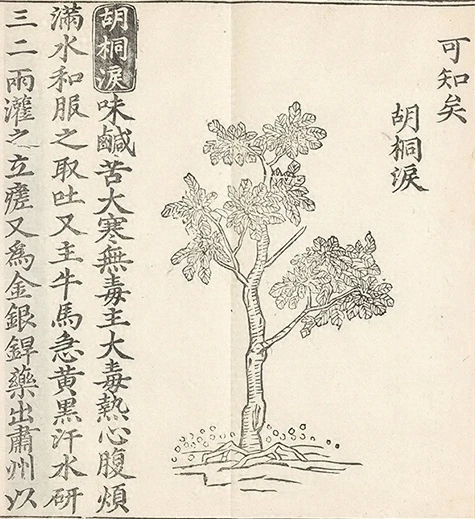 可知矣
胡桐淚
胡桐淚味鹹苦大寒無毒主大毒熱心腹煩
滿水和服之取吐又主牛馬急黃黑汗水研
三二兩灌之立瘥又為金銀銲藥出肅州以